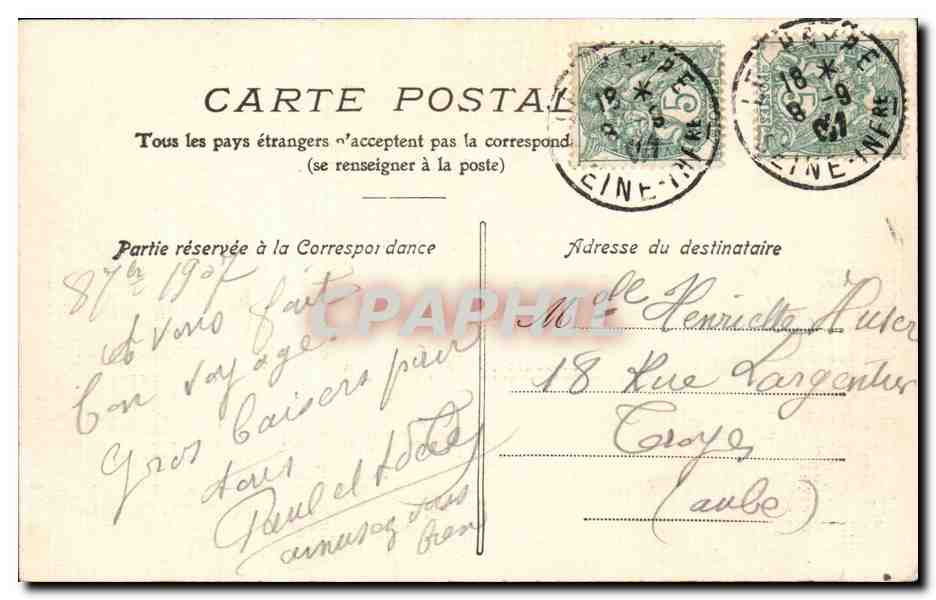 CARTE POSTAL
Tous les pays étrangers n'acceptent pas la correspond
(se renseigner à la poste)
HAVRE
18 *
8 - 9
07
SEINE-INFRE
5
LE HAVRE
18 *
8 - 9
07
SEINE-INFRE
Partie réservée à la Correspondance
8 7bre 1907
et vous fait
bon voyage.
Gros baisers pour
tous
Paul et
amusez vous
bien
Adresse du destinataire
Mdelle Henriette
18 Rue Largentier
Troyes
(aube)
CPAPHIL